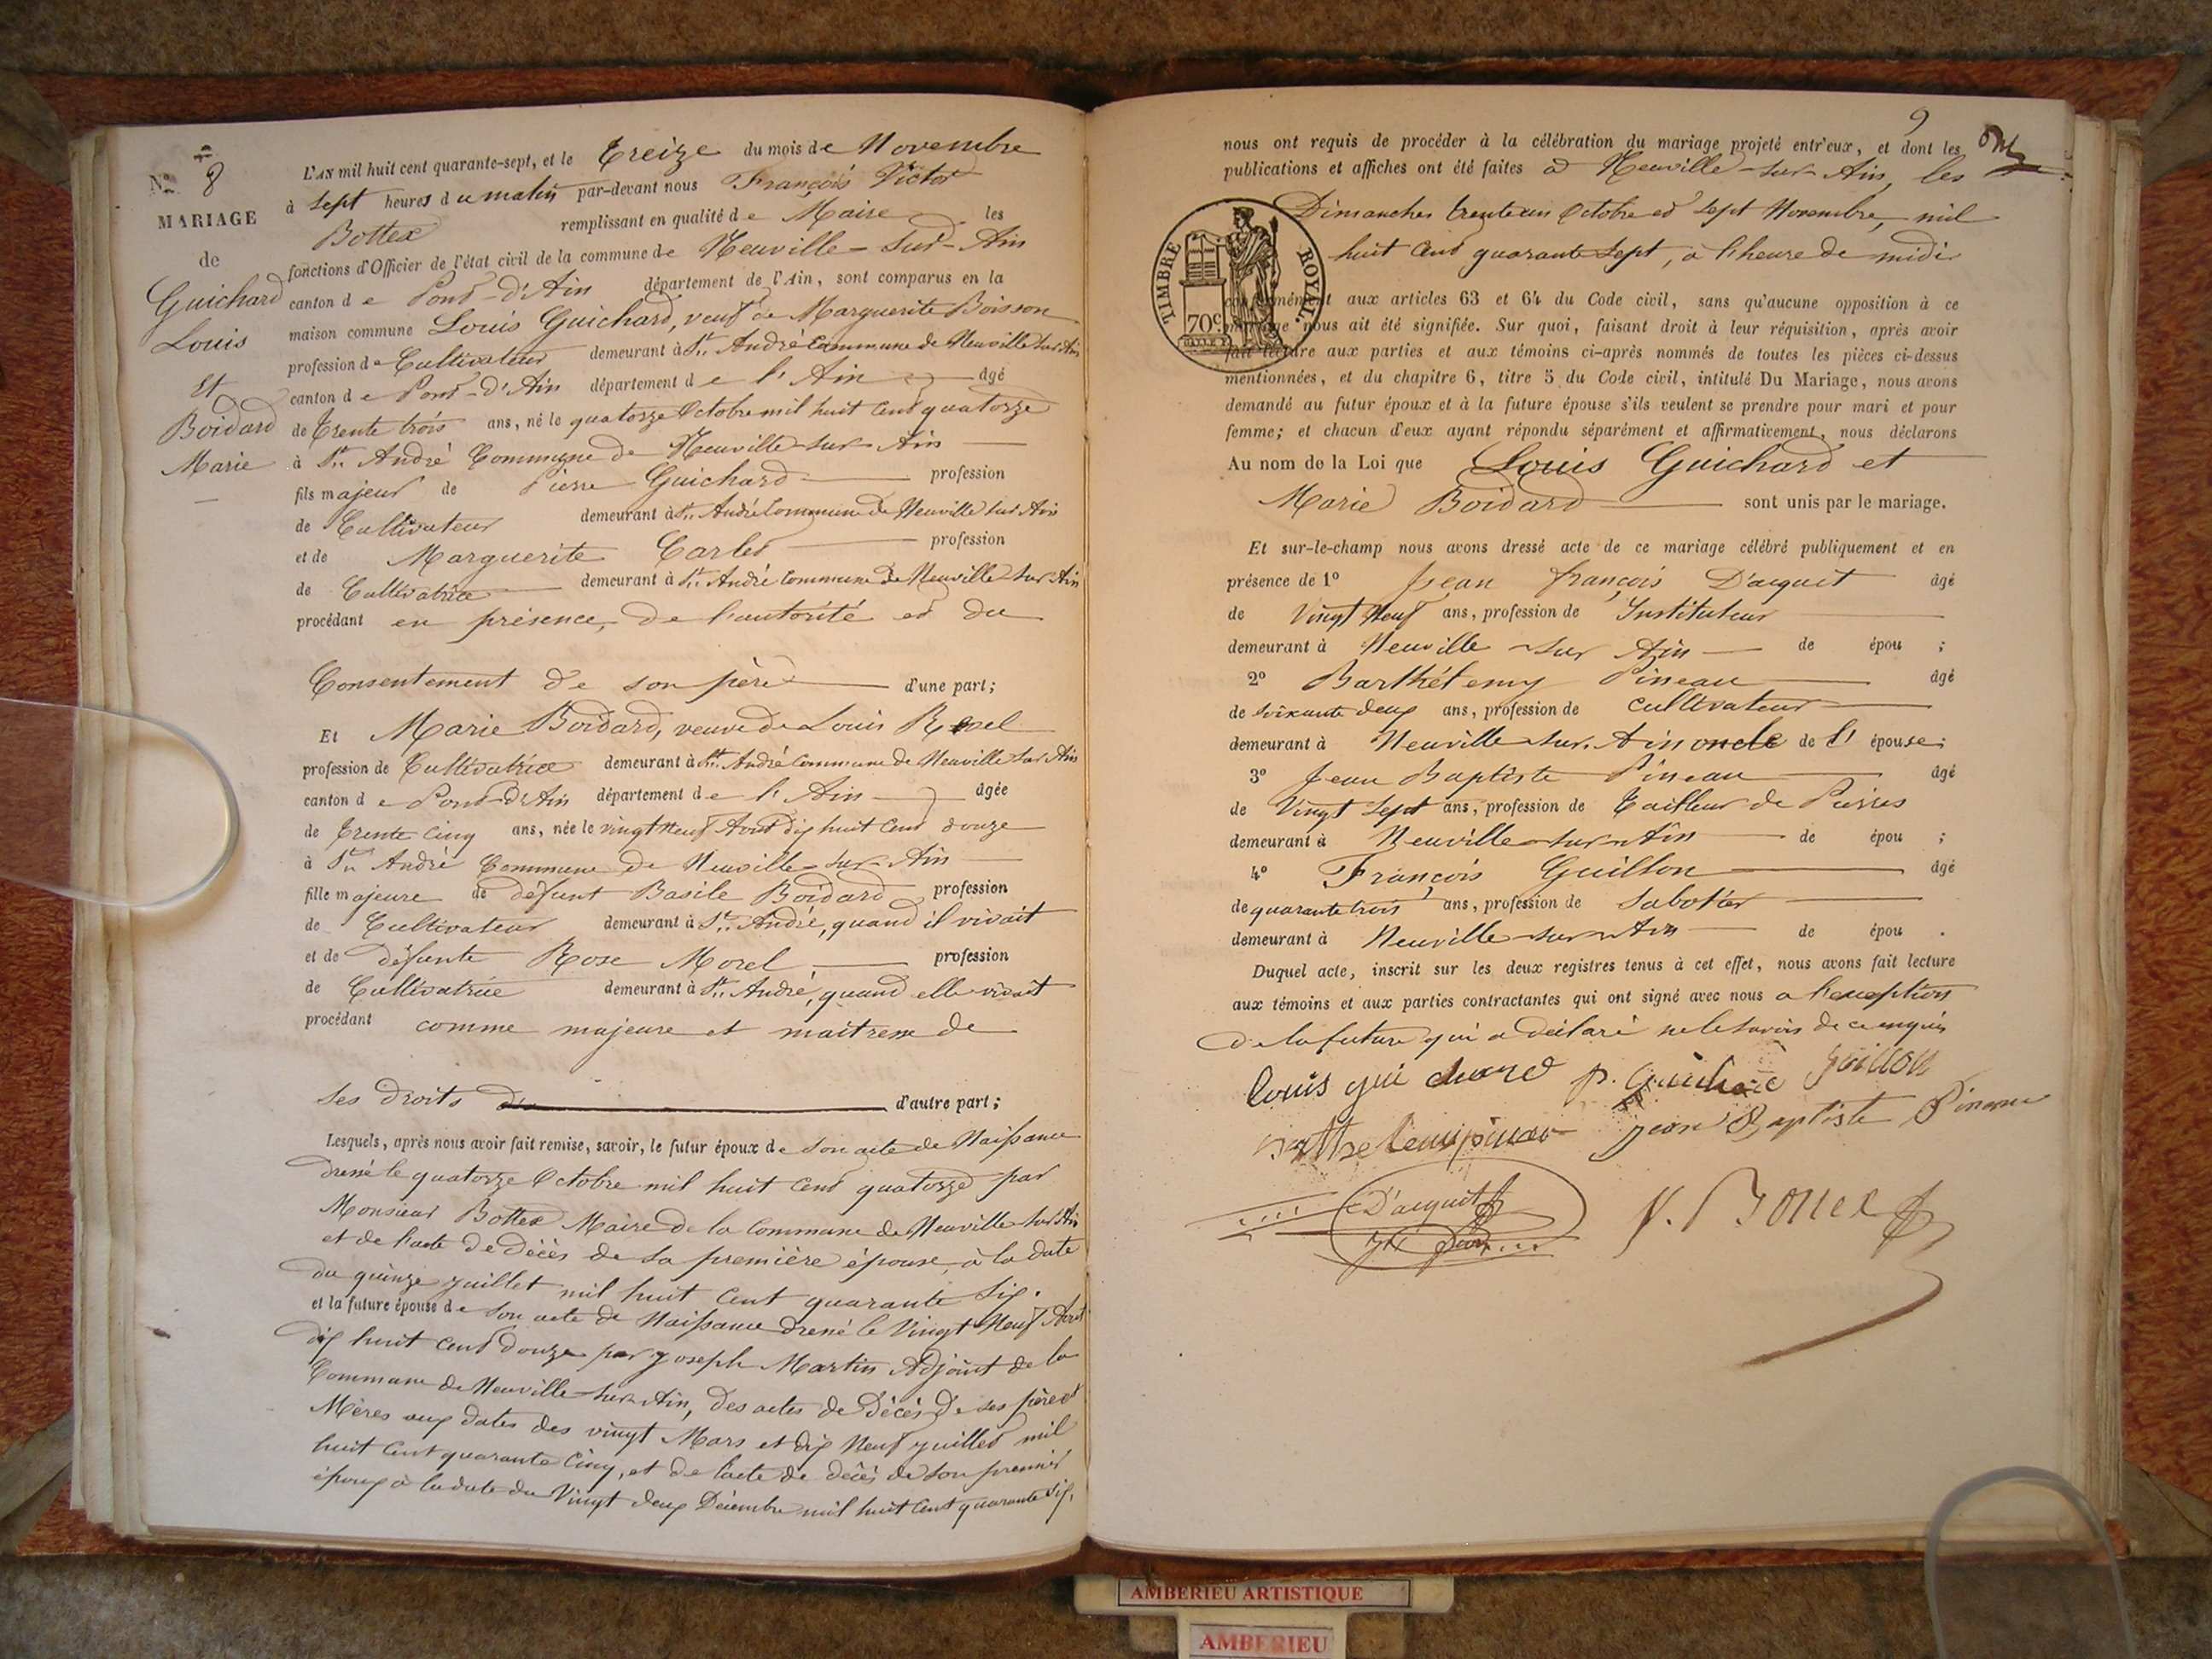 N° 8
MARIAGE
de
Guichard
Louis
Et
Boidard
Marie
L'AN mil huit cent quarante-sept, et le Treize du mois de Novembre
à Sept heures du matin par-devant nous François Victor
Bottex remplissant en qualité de Maire les
fonctions d'Officier de l'état civil de la commune de Neuville-Sur-Ain
canton de Pont-d'Ain département de l'Ain, sont comparus en la
maison commune Louis Guichard, veuf de Marguerite Boisson
profession de Cultivateur demeurant à St. André Commune de Neuville sur Ain
canton de Pont-d'Ain département de l'Ain âgé
de Trente trois ans, né le quatorze Octobre mil huit cent quatorze
à St. André Commune de Neuville-sur-Ain
fils majeur de Pierre Guichard profession
de Cultivateur demeurant à St. André Commune de Neuville sur Ain
et de Marguerite Carlet profession
de Cultivatrice demeurant à St. André Commune de Neuville sur Ain
procédant en présence, de l'autorité et du
Consentement de son père d'une part;
Et Marie Boidard, veuve de Louis Revel
profession de Cultivatrice demeurant à St. André Commune de Neuville sur Ain
canton de Pont-d'Ain département de l'Ain âgée
de Trente cinq ans, née le vingt Neuf Aout dix huit cent douze
à St. André Commune de Neuville-sur-Ain
fille majeure de défunt Basile Boidard profession
de Cultivateur demeurant à St. André, quand il vivait
et de défunte Rose Morel profession
de Cultivatrice demeurant à St. André, quand elle vivait
procédant comme majeure et maitresse de
ses droits d'autre part;
Lesquels, après nous avoir fait remise, savoir, le futur époux de son acte de Naissance
dressé le quatorze Octobre mil huit cent quatorze par
Monsieur Bottex Maire de la Commune de Neuville sur Ain
et de l'acte de décès de sa première épouse, à la date
du quinze juillet mil huit cent quarante six.
et la future épouse de son acte de Naissance dressé le Vingt Neuf Aout
dix huit cent douze par Joseph Martin Adjoint de la
Commune de Neuville-sur-Ain, des actes de Décès de ses père et
Mères aux dates des vingt Mars et dix Neuf juillet mil
huit cent quarante cinq, et de l'acte de décès de son premier
époux à la date du Vingt deux Décembre mil huit cent quarante six.
9
nous ont requis de procéder à la célébration du mariage projeté entr'eux, et dont les
publications et affiches ont été faites à Neuville-sur-Ain, les
Dimanches trente un Octobre et Sept Novembre, mil
huit cent quarante sept, à l'heure de midi
TIMBRE ROYAL.
70c
conformément aux articles 63 et 64 du Code civil, sans qu'aucune opposition à ce
mariage nous ait été signifiée. Sur quoi, faisant droit à leur réquisition, après avoir
fait lecture aux parties et aux témoins ci-après nommés de toutes les pièces ci-dessus
mentionnées, et du chapitre 6, titre 5 du Code civil, intitulé Du Mariage, nous avons
demandé au futur époux et à la future épouse s'ils veulent se prendre pour mari et pour
femme; et chacun d'eux ayant répondu séparément et affirmativement, nous déclarons
Au nom de la Loi que Louis Guichard et
Marie Boidard sont unis par le mariage.
Et sur-le-champ nous avons dressé acte de ce mariage célébré publiquement et en
présence de 1° Jean françois D'acquit âgé
de Vingt Neuf ans, profession de Instituteur
demeurant à Neuville-sur Ain de épou ;
2° Barthélemy Pineau âgé
de soixante deux ans, profession de cultivateur
demeurant à Neuville sur Ain oncle de l'épouse;
3° Jean Baptiste Pineau âgé
de Vingt Sept ans, profession de Tailleur de Pierres
demeurant à Neuville-sur-Ain de épou ;
4° François Guillon âgé
de quarante trois ans, profession de Sabotier
demeurant à Neuville-sur-Ain de épou .
Duquel acte, inscrit sur les deux registres tenus à cet effet, nous avons fait lecture
aux témoins et aux parties contractantes qui ont signé avec nous a l'exception
de la future qui a déclaré ne le savoir de ce enquis
louis gui chard p. Guichard guillon
Barthelemi pineau jean Baptiste Pineau
D'acquit
V. Bottex
AMBERIEU ARTISTIQUE
AMBERIEU